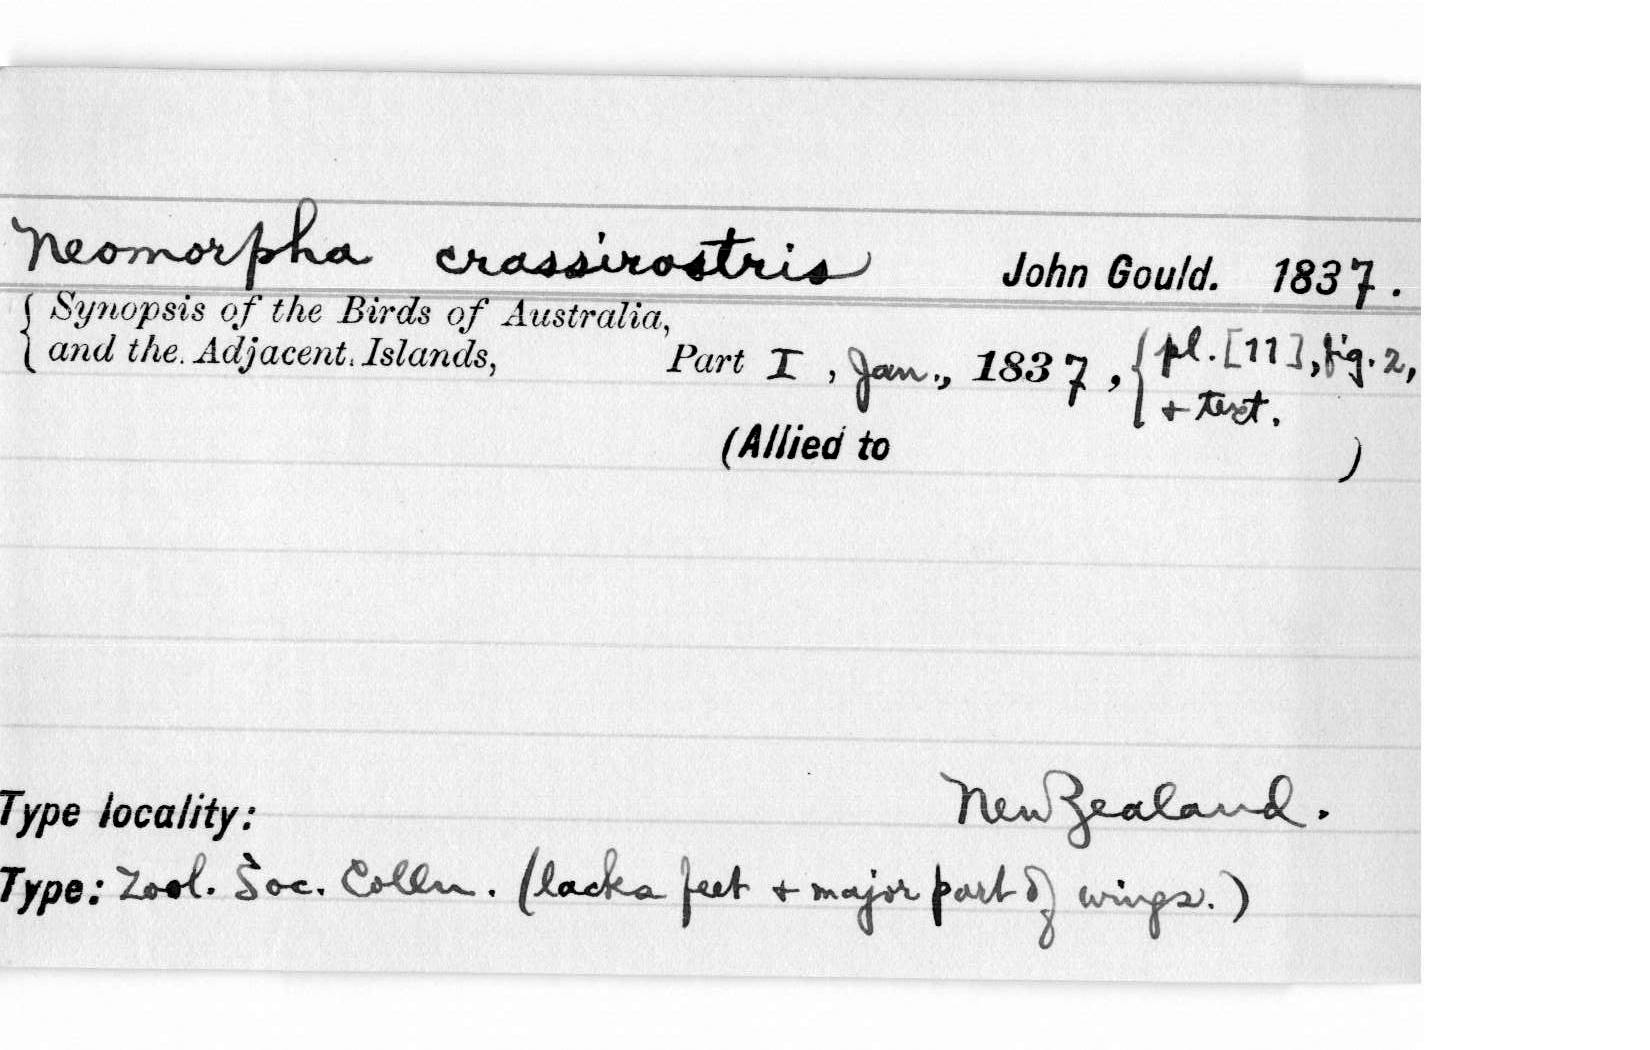 Neomorpha crassirostris John Gould. 1837.
{ Synopsis of the Birds of Australia,
and the Adjacent Islands, Part I, Jan., 1837, { pl. [11], fig. 2,
+ text.
(Allied to )
Type locality: New Zealand.
Type: Zool. Soc. Colln. (lacks feet + major part of wings.)